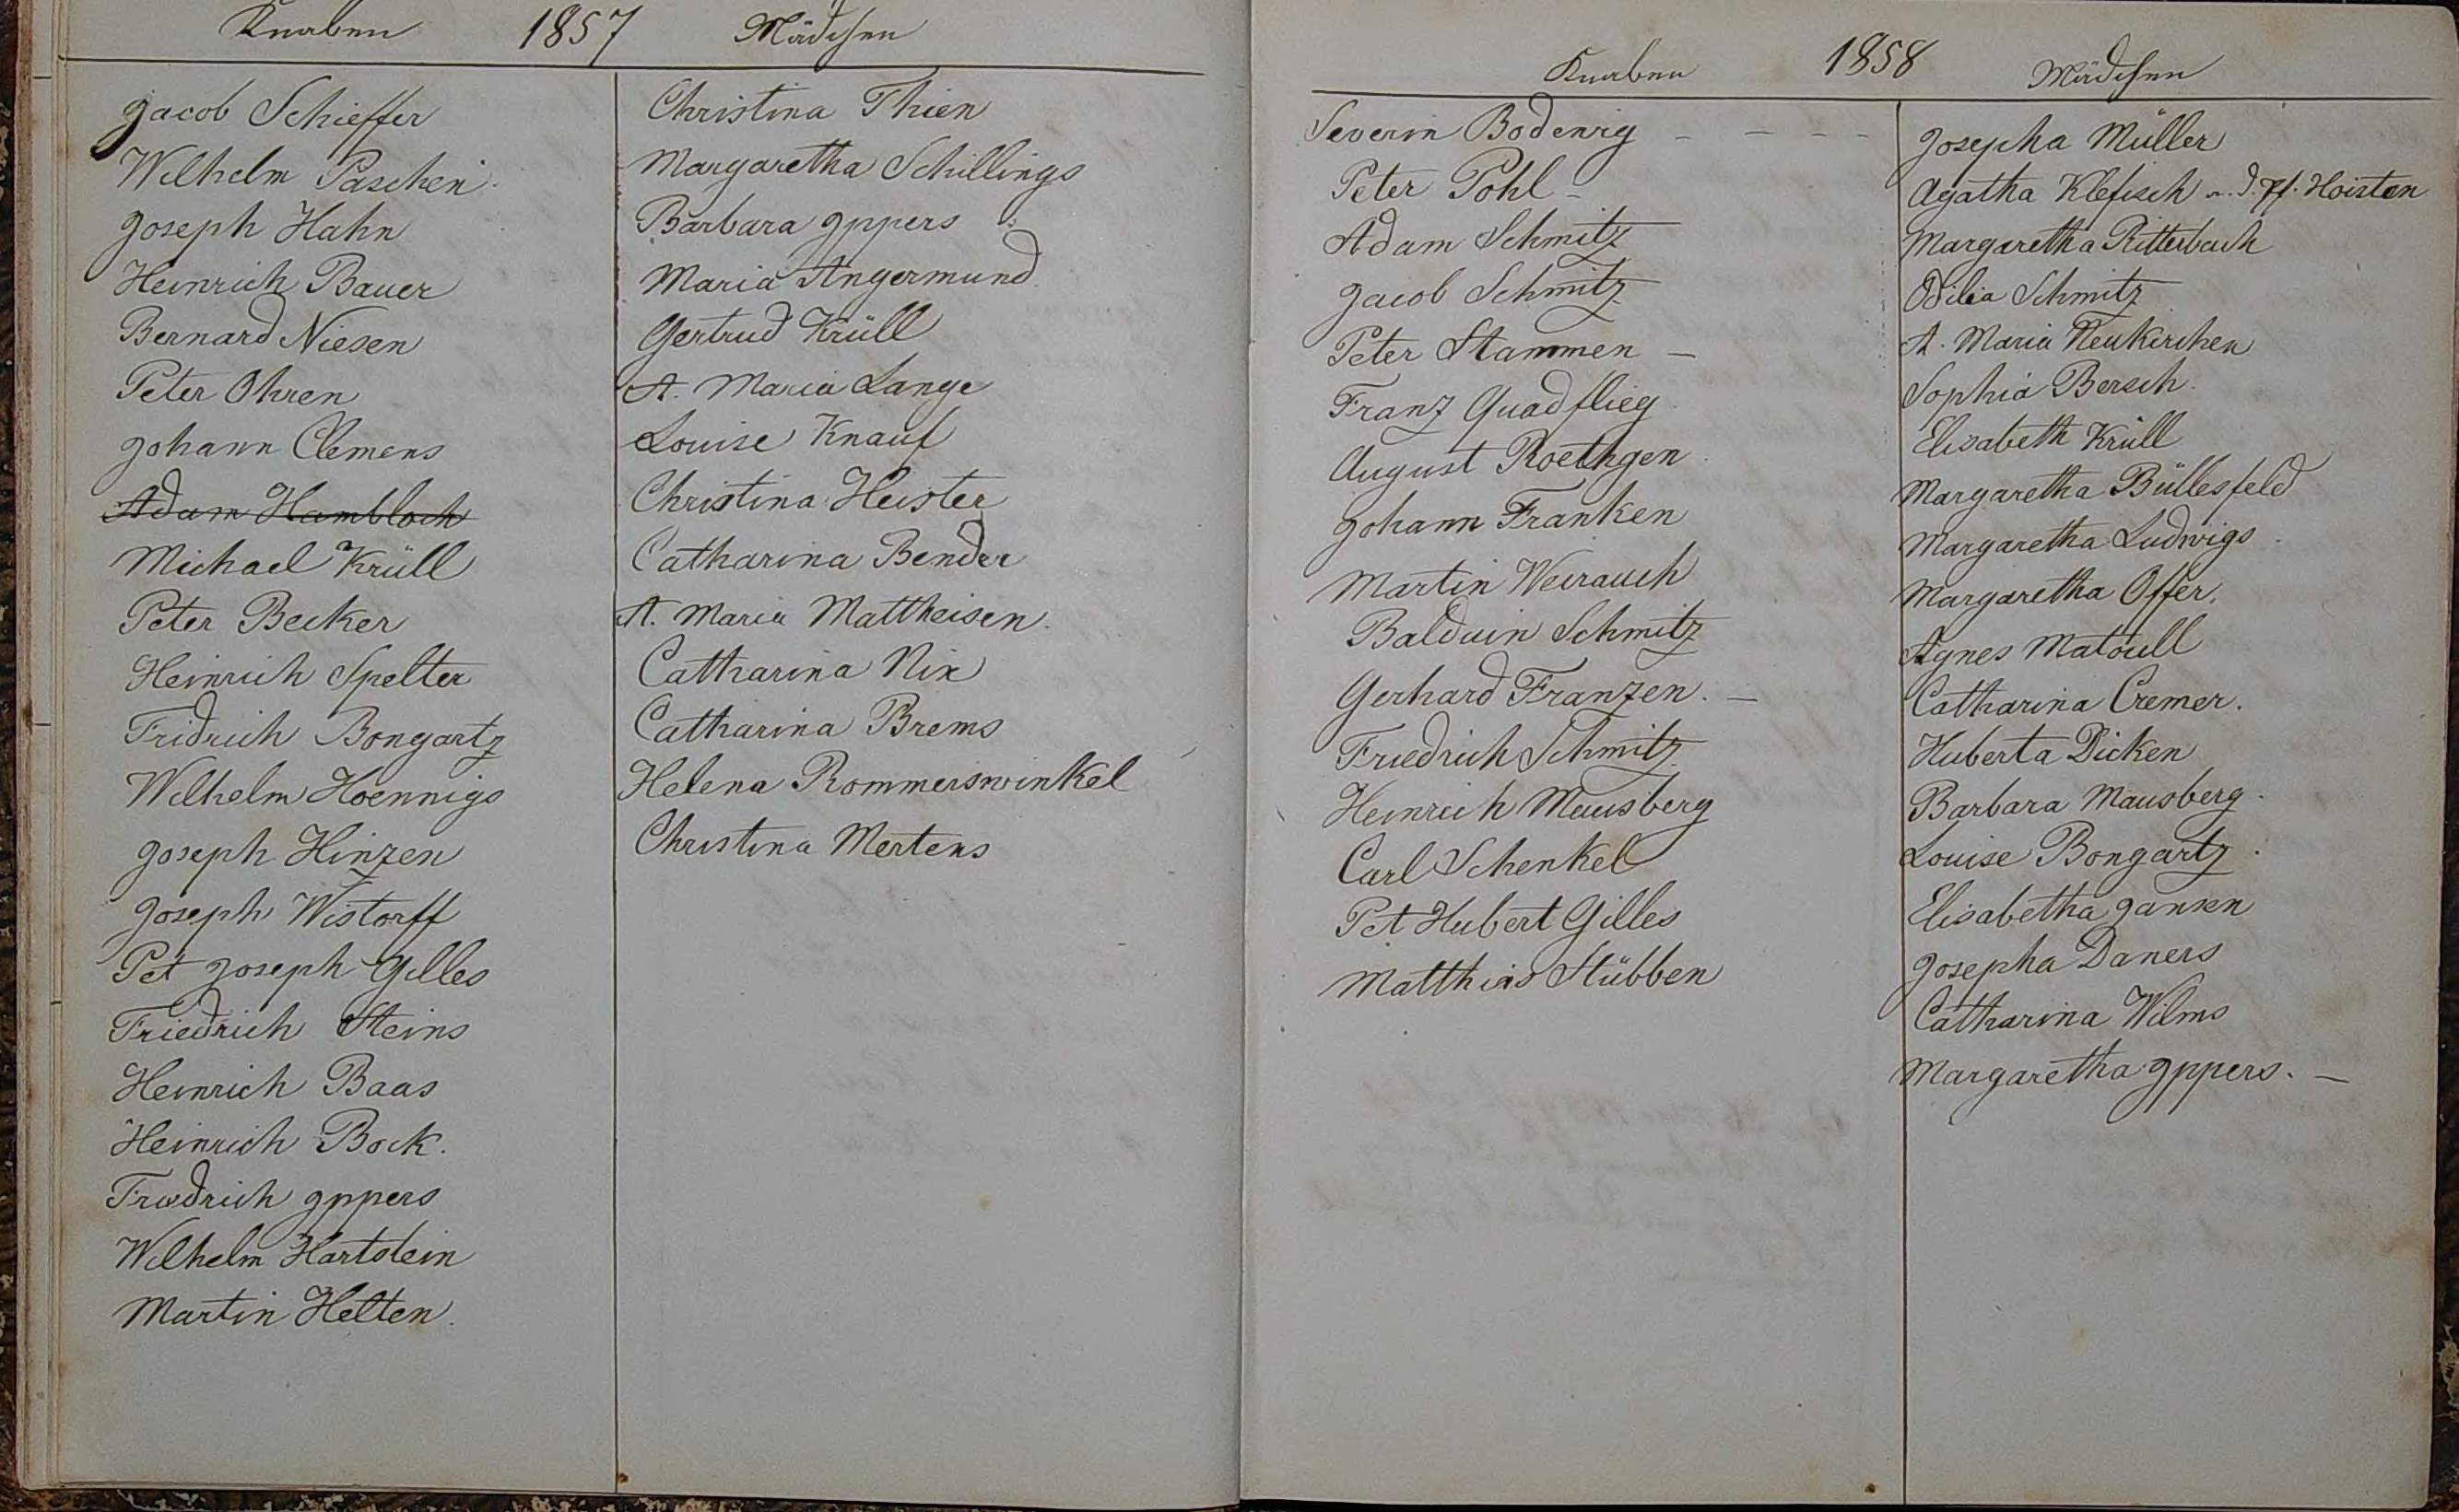 Knaben 1857 Mädchen
Jacob Schieffer
Wilhelm Paschen
Joseph Hahn
Heinrich Bauer
Bernard Niesen
Peter Ohren
Johann Clemens
Adam Hambloch
Michael Krüll
Peter Becker
Heinrich Spelter
Fridrich Bongartz
Wilhelm Hoennigs
Joseph Hinzen
Joseph Wistorff
Pet Joseph Gilles
Friedrich Steins
Heinrich Baas
Heinrich Bock.
Friedrich Ippers
Wilhelm Hartstein
Martin Helten.
Christina Thien
Margaretha Schillings
Barbara Ippers
Maria Angermund
Gertrud Krüll
A. Maria Lange
Louise Knauf
Christina Heister
Catharina Bender
A. Maria Mattheisen.
Catharina Nix
Catharina Brems
Helena Rommerswinkel
Christina Mertens
Knaben 1858 Mädchen
Severin Bodewig - - - -
Peter Pohl -
Adam Schmitz
Jacob Schmitz
Peter Stammen -
Franz Quadflieg
August Roethgen
Johann Franken
Martin Weirauch
Balduin Schmitz
Gerhard Franzen. -
Friedrich Schmitz
Heinrich Mausberg
Carl Schenkel
Pet Hubert Gilles
Matthias Stübben
Josepha Müller
Agatha Klefisch a. d. Pf. Hoisten
Margaretha Ritterbach
Odilia Schmitz
A. Maria Neukirchen
Sophia Bersch.
Elisabeth Krüll
Margaretha Büllesfeld
Margaretha Ludwigs.
Margaretha Offer.
Agnes Matoull
Catharina Cremer.
Huberta Dicken
Barbara Mausberg.
Louise Bongartz
Elisabetha Jansen
Josepha Daners
Catharina Wilms
Margaretha Ippers. -